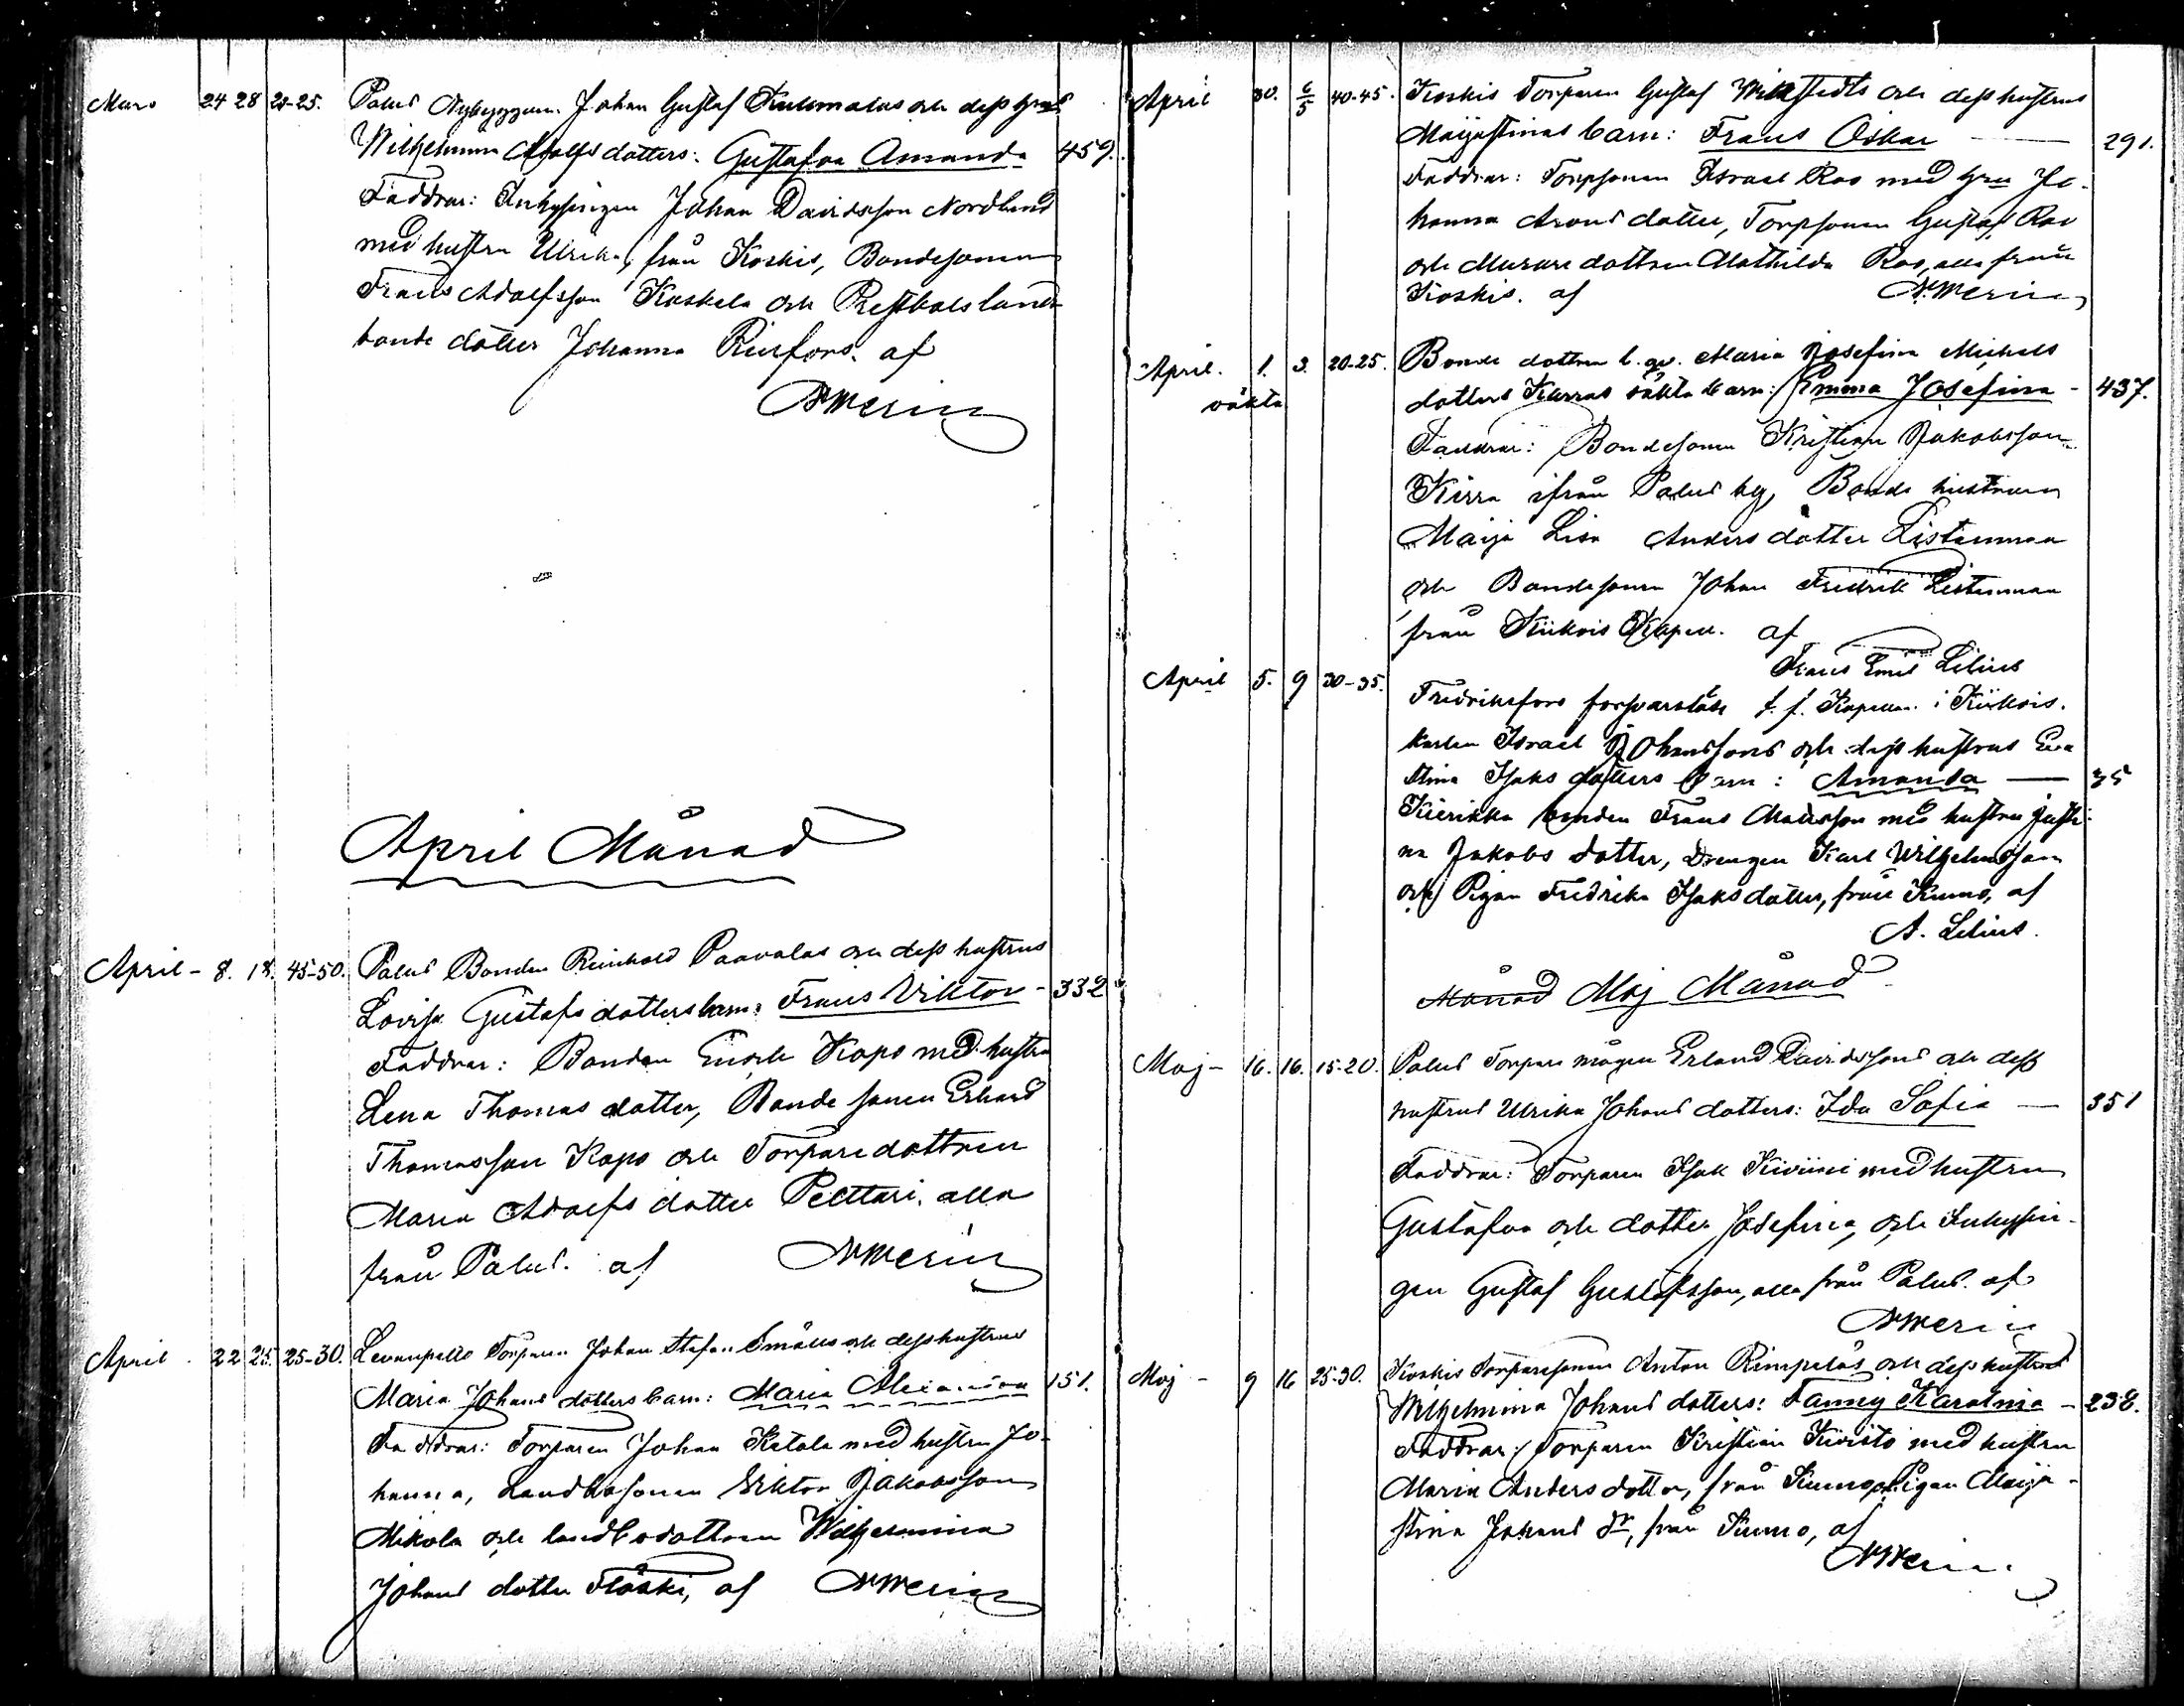 Mars 24 28 20-25. Palus Nybyggaren Johan Gustaf Kulmalas och dess hus
Wilhelmina Adolfs dotters: Gustafva Amanda 459.
Faddrar: Inhysingen Johan Davidsson Nordlund
med hustru Ulrika, från Koskis, Bondesonen
Frans Adolfsson Koskela och Prestbols land-
bonde dotter Johanna af
April Månad
April - 8. 18. 45-50. Palus Bonden Reinhold Paavalas och dess hustrus
Lovisa Gustafs dotters barn: Frans Viktor - 332
Faddrar: Bonden Enock Kopo med hustru
Lena Thomas dotter, Bonde sonen Erhard
Thomasson Kopo och Torpare dottren
Maria Adolfs dotter Pelttari, alla
från Palus. af
April 22 25. 25-30. Levanpelto Torparen Johan Stefan och dess hustrus
Maria Johans dotters barn: Maria Alexandra 151.
Faddrar: Torparen Johan Ketola med hustru Jo-
hanna, Landbosonen Viktor Jakobsson
Mikola och landbodottren Wilhelmina
Johans dotter Flöski, af
April 30. 6/5 40-45. Koskis Torparen Gustaf Wikstedts och dess hustrus
Maijastinas barn: Frans Oskar 291.
Faddrar: Torpsonen Israel Ros med hru Jo-
hanna Arons dotter, Torpsonen Gustaf Ros
och Murare dottren Mathilda Ros, alla från
Koskis. af
April. 1. 3. 20-25. Bonde dottren l. qv. Maria Josefina Michels
oäkta dotters Kirras oäkta barn: Emma Josefina - 437.
Faddrar: Bondesonen Kristian Jakobsson
Kirra ifrån Palus by, Bonde hustrun
Maija Lisa Anders dotter Listenmaa
och Bondesonen Johan Fredrik Listenmaa
från Kiikois Kapell. af
Frans Emil Lilius
April 5. 9 30-35. Fredriksfors försvarslöse f. f. Kapellan i Kiikois.
karlen Israel Johanssons och dess hustrus Eva
Stina Isaks dotters barn: Amanda 35
Kierikka bonden Frans Matsson med hustru Justi-
na Jakobs dotter, Drengen Karl Wilhelmsson
och Pigan Fredrika Isaks dotter, från Kumo, af
A. Lilius.
Månad Maj Månad
Maj - 16. 16. 15-20. Palus Torpare mågen Erland Davidssons och dess
hustrus Ulrika Johans dotters: Ida Sofia 351
Faddrar: Torparen Isak Kiviini med hustru
Gustafva och dotter Josefina, och Inhysin-
gen Gustaf Gustafsson, alla från Palus. af
Maj - 9 16 25-30. Koskis Torparesonen Anton Rimpeläs och dess hustrus
Wilhelmina Johans dotters: Fanny Karolina - 238.
Faddrar: Torparen Kristian Kivistö med hustru
Maria Anders dotter, från Kumo, Pigan Maija-
stina Johans dr, från Kumo, af